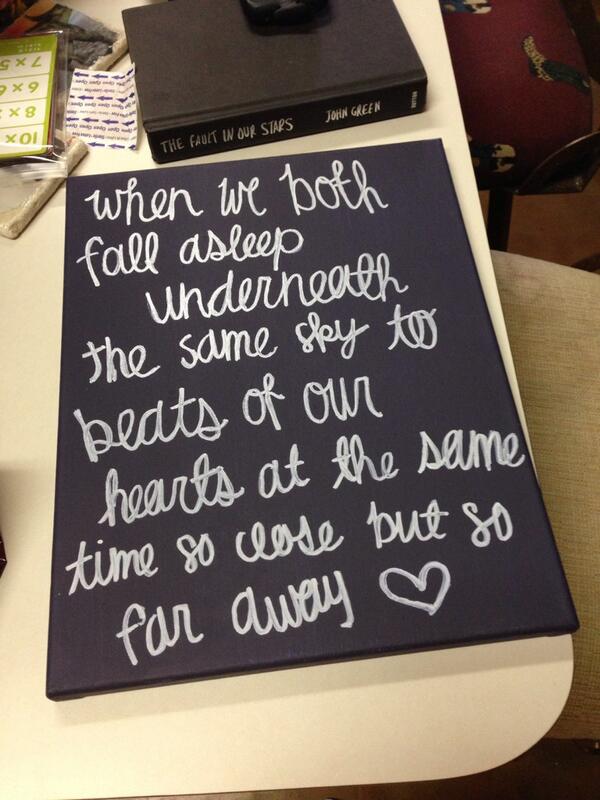 7 x 5
6 x 6
8 x
10 x
THE FAULT IN OUR STARS JOHN GREEN DUTTON
when we both
fall asleep
underneath
the same sky to
beats of our
hearts at the same
time so close but so
far away